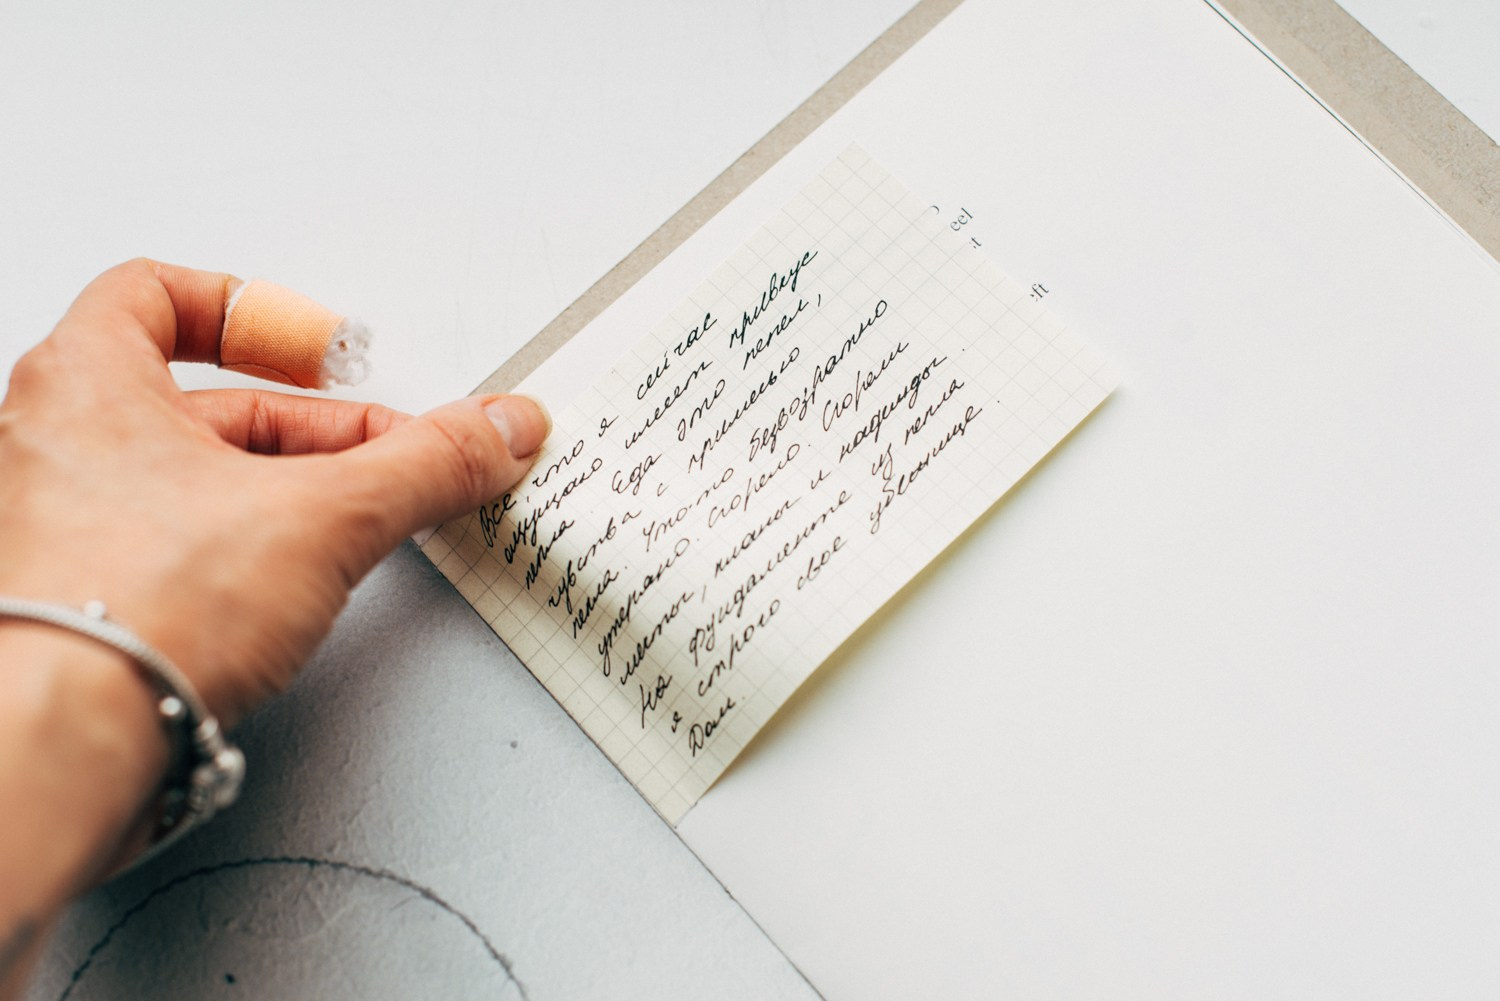 Всё, что я сейчас
ощущаю имеет привкус
пепла. Еда это пепел,
чувства с примесью
пепла. Что-то безвозвратно
утеряно. Сгорело. Сгорели
мечты, планы и надежды.
На фундаменте из пепла
я строю свое убежище.
Дом.
eel
ft